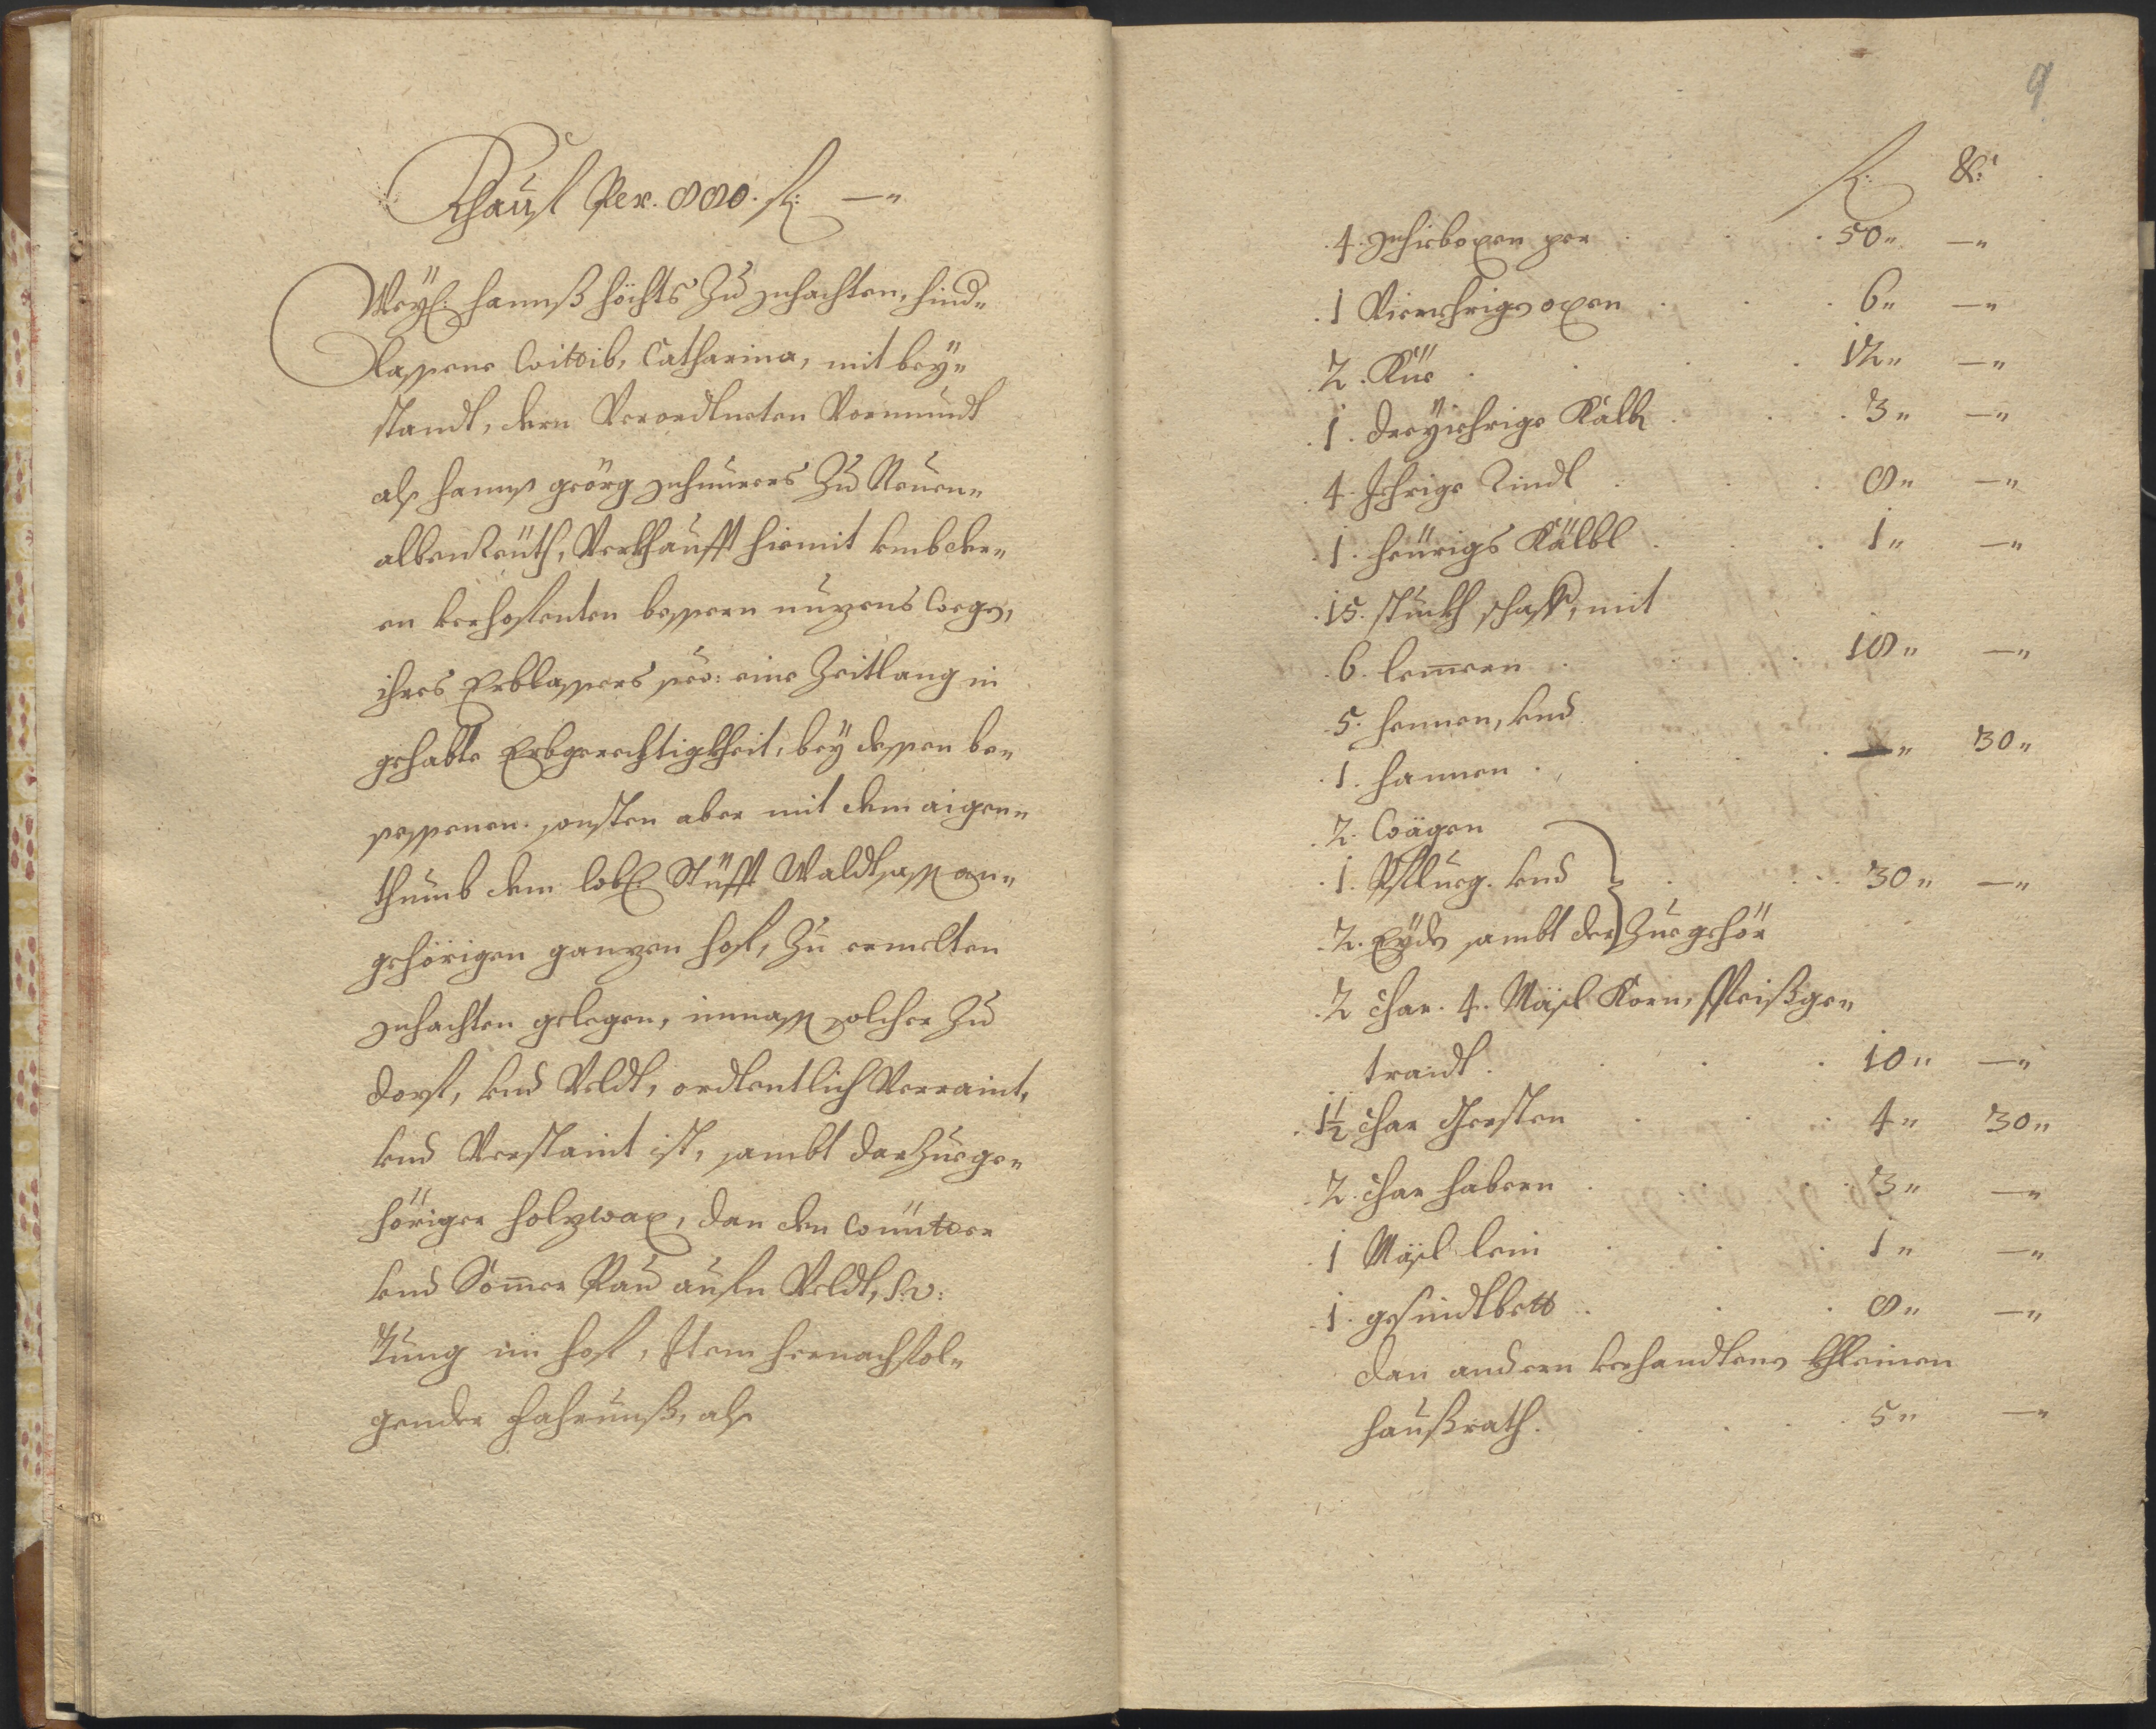 Khauf Per. 880. fl: —"
Weyl: Hannß Höchts Zu Schachten, hind"
lassene Wittib, Catharina, mit bey"
standt, dern Verordtneten Vormundt
als Hannß Geörg Schnurers Zu Neuen"
albenreuth, Verkhaufft hiemit umb ihr"
en verhoffenten bessern nuzens Wegen,
ihres Erblassers seel: eine Zeitlang in
gehabte Erbgerechtigkheit, bey dessen be"
sessenen. sonsten aber mit dem aigen"
thumb dem lobl. Stüfft Waldtsassen an"
gehörigen ganzen hof, Zu ermelten
Schachten gelegen, inmassen solcher Zu
dorf, und Veldt, ordtentlich Verraint,
und Verstaint ist, sambt darzuege"
höriger holzwax, dan den Wünter
und Sommer Pau aufm Veldt, s: v:
Tung im hof, Item hernachfol"
gender Fahrnuß, als
9
fl: kr:
4. Schiboxen per . . . 50" —"
1 Vierjehrigen oxen . . . 6" —"
2. Küe . . . 12" —"
1. dreyjehrige Kalb . . . 3" —"
4. Jehrige Rindl . . . 8" —"
1. heurigs Kälbl . . . 1" —"
15. stuckh schaff, mit
6. lemern . . . 18" —"
5. hennen, und
1. hannen . . . —" 30"
2. Wägen
1. Pflueg. und . . . 30" —"
2. Eyden sambt der Zuegehör
2 Char. 4. Mäsl Korn, Speißge"
traidt . . . 10" —"
1½ Char Gersten . . . 4" 30"
2. Char habern . . . 3" —"
1 Mäsl lein . . . 1" —"
1. gesindtbett . . . 8" —"
dan andern verhandtenen Khleinen
haußrath . . . 5" —"